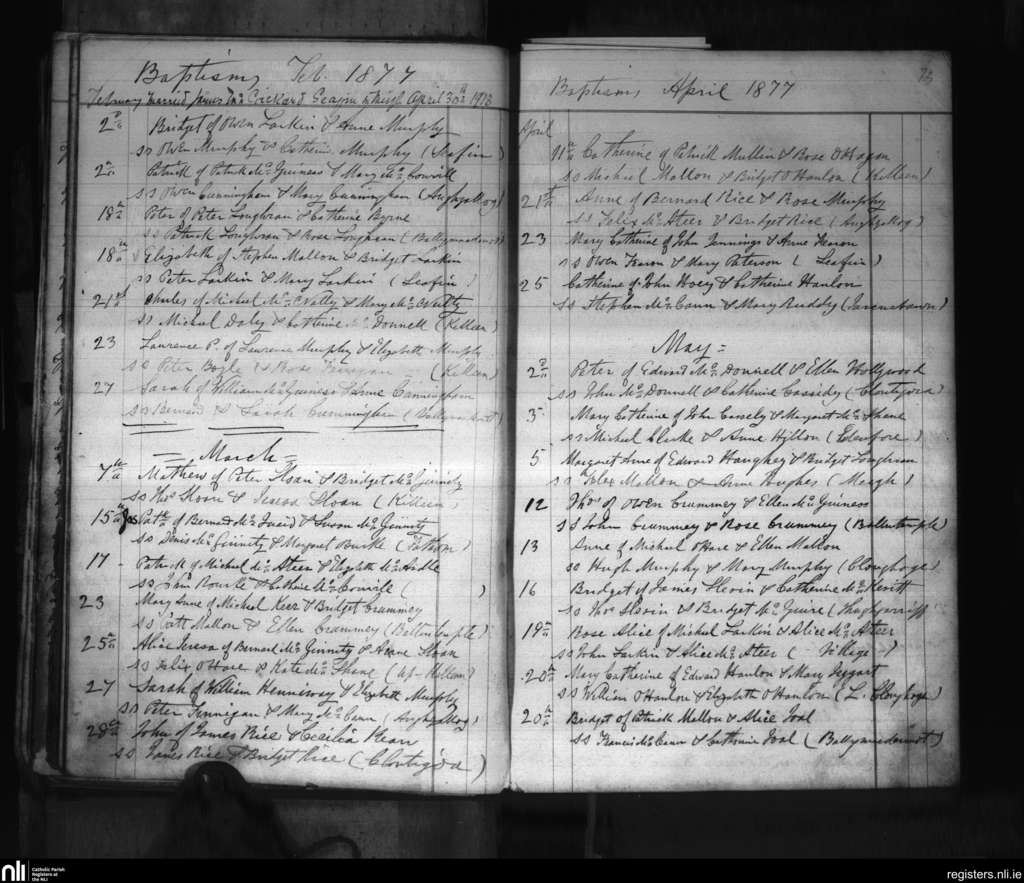 Baptisms Feb. 1877
February married James Mc Crickard Seafin April 30th 1903
2nd Bridget of Owen Larkin & Anne Murphy
ss Owen Murphy & Catherine Murphy (Seafin)
2nd Patrick of Patrick Mc Guiness & Mary Mc Conville
ss Owen Cunningham & Mary Cunningham (Aughyallog)
18th Peter of Peter Loughran & Catherine Byrne
ss Patrick Loughran & Rose Loughran (Ballymacdermot)
18th Elizabeth of Stephen Mallon & Bridget Larkin
ss Peter Larkin & Mary Larkin (Seafin)
21st Charles of Michael Mc Nally & Mary Mc Nulty
ss Michael Daly & Catherine Mc Donnell (Killeen)
23 Laurence P. of Laurence Murphy & Elizabeth Murphy
ss Peter Boyle & Rose (Killeen)
27 Sarah of William Mc Guiness & Anne Cunningham
ss Bernard & Sarah Cunningham
March
7th Mathew of Peter Sloan & Bridget Mc Ginnity
ss Thos Sloan & Teresa Sloan (Killeen)
15th Jas Patk of Bernard Mc Quaid & Susan Mc Ginnity
ss Denis Mc Ginnity & Margaret Burke (Fathom)
17 Patrick of Michael Mc Ateer & Elizabeth Mc Ardle
ss John Rourke & Catherine Mc Conville ( )
23 Mary Anne of Michael Keer & Bridget Crummey
ss Patt Mallon & Ellen Crummey (Ballintemple)
25th Alice Teresa of Bernard Mc Ginnity & Anne Sloan
ss Felix O'Hare & Kate Mc Shane
27 Sarah of William Hennessey & Elizabeth Murphy
ss Peter Finnigan & Mary Mc Cann (Aughyallog)
28th John of James Rice & Cecilia Kean
ss James Rice & Bridget Rice (Clontigora)
73
Baptisms April 1877
April
11th Catherine of Patrick Mullin & Rose O'Hagan
ss Michael Mallon & Bridget O'Hanlon (Killeen)
21st Anne of Bernard Rice & Rose Murphy
ss Felix Mc Ateer & Bridget Rice (Aughyallog)
23 Mary Catherine of John Jennings & Anne Fearon
ss Owen Fearon & Mary Paterson (Seafin)
25 Catherine of John Hoey & Catherine Hanlon
ss Stephen Mc Cann & Mary Ruddy
May
2nd Peter of Edward Mc Donnell & Ellen Hollywood
ss John Mc Donnell & Catherine Cassidy (Clontigora)
3 Mary Catherine of John Cassely & Margaret Mc Shane
ss Michael Clarke & Anne Hillon (Edenfore)
5 Margaret Anne of Edward Haughey & Bridget Loughran
ss Felix Mallon & Anne Hughes (Meigh)
12 Thos of Owen Crummey & Ellen Mc Guiness
ss John Crummey & Rose Crummey (Ballintemple)
13 Anne of Michael O'Hare & Ellen Mallon
ss Hugh Murphy & Mary Murphy (Cloughoge)
16 Bridget of James Slevin & Catherine Mc Kevitt
ss Thos Slavin & Bridget Mc Guire
19th Rose Alice of Michael Larkin & Alice Mc Ateer
ss John Larkin & Alice Mc Ateer (Village)
20th Mary Catherine of Edward Hanlon & Mary Taggart
ss William O'Hanlon & Elizabeth O'Hanlon (L. Cloughoge)
20th Bridget of Patrick Mallon & Alice Toal
ss Francis Mc Cann & Catherine Toal (Ballymacdermot)
nli Catholic Parish
Registers at
the NLI
registers.nli.ie